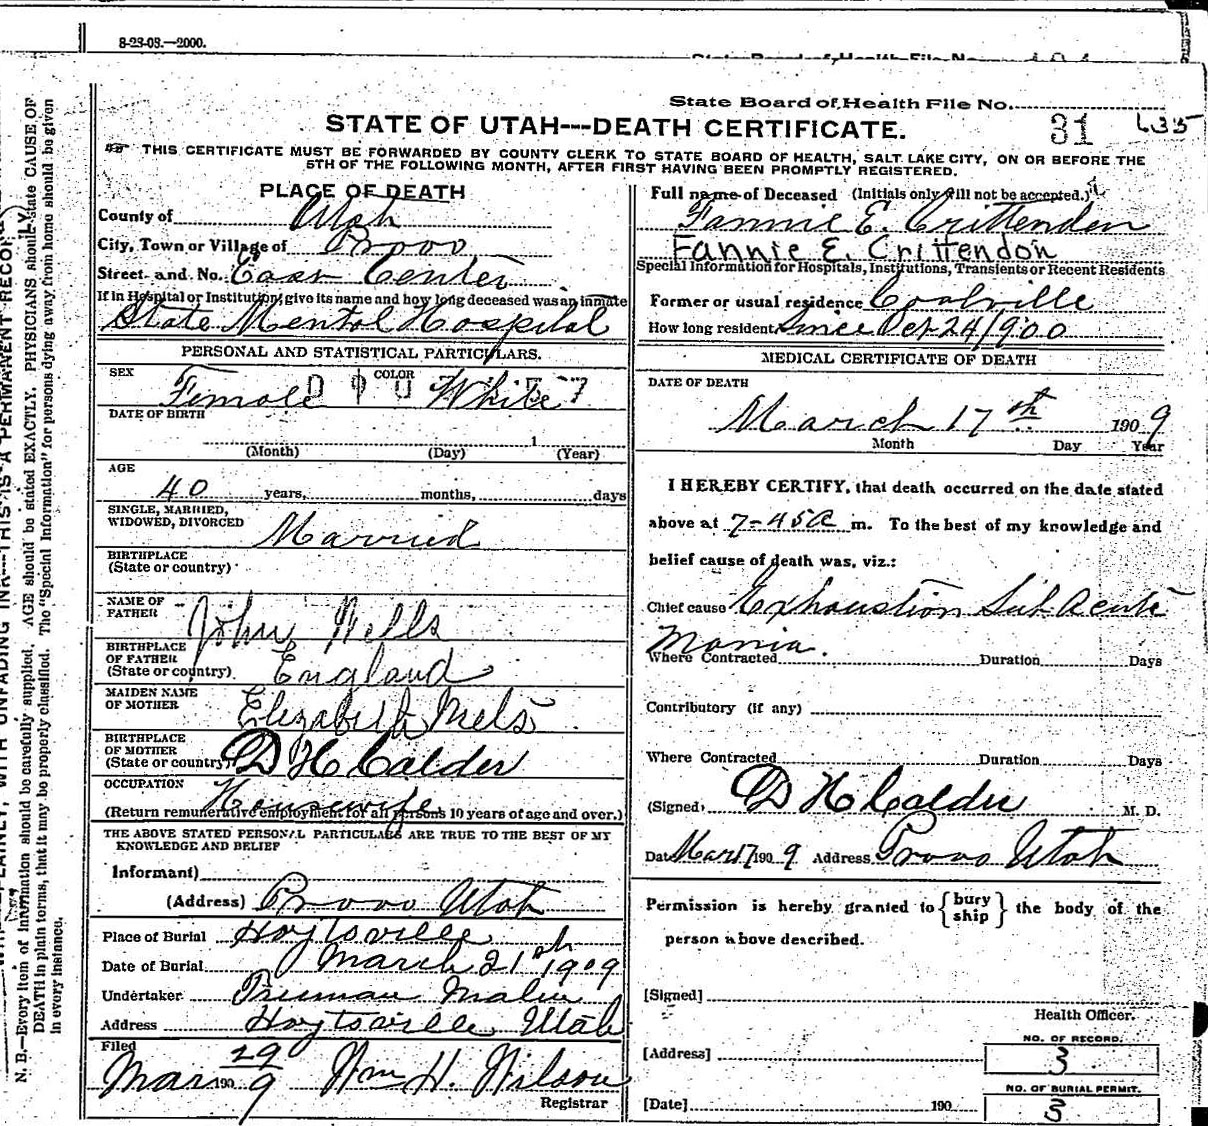 8-23-08.—2000.
State Board of Health File No.
31 635
STATE OF UTAH---DEATH CERTIFICATE.
THIS CERTIFICATE MUST BE FORWARDED BY COUNTY CLERK TO STATE BOARD OF HEALTH, SALT LAKE CITY, ON OR BEFORE THE
5TH OF THE FOLLOWING MONTH, AFTER FIRST HAVING BEEN PROMPTLY REGISTERED.
PLACE OF DEATH
County of Utah
City, Town or Village of Provo
Street and No. East Center
If in Hospital or Institution, give its name and how long deceased was an inmate
State Mental Hospital
PERSONAL AND STATISTICAL PARTICULARS.
SEX Female COLOR White
DATE OF BIRTH
1
(Month) (Day) (Year)
AGE
40 years, months, days
SINGLE, MARRIED,
WIDOWED, DIVORCED Married
BIRTHPLACE
(State or country)
NAME OF
FATHER John Wells
BIRTHPLACE
OF FATHER
(State or country) England
MAIDEN NAME
OF MOTHER Elizabeth
BIRTHPLACE
OF MOTHER
(State or country) D H Calder
OCCUPATION
Housewife
(Return remunerative employment for all persons 10 years of age and over.)
THE ABOVE STATED PERSONAL PARTICULARS ARE TRUE TO THE BEST OF MY
KNOWLEDGE AND BELIEF
Informant)
(Address) Provo Utah
Place of Burial Hoytsville
Date of Burial March 21st 1909
Undertaker Truman Malin
Address Hoytsville Utah
Filed
Mar 29 1909 Wm H. Wilson
Registrar
Full name of Deceased (Initials only will not be accepted.)
Fannie E. Crittenden
Fannie E. Crittendon
Special Information for Hospitals, Institutions, Transients or Recent Residents
Former or usual residence Coalville
How long resident Since Oct 24 1900
MEDICAL CERTIFICATE OF DEATH
DATE OF DEATH
March 17th 1909
Month Day Year
I HEREBY CERTIFY, that death occurred on the date stated
above at 7-45 a m. To the best of my knowledge and
belief cause of death was, viz.:
Chief cause Exhaustion Sub Acute
Mania.
Where Contracted Duration Days
Contributory (if any)
Where Contracted Duration Days
(Signed) D H Calder M. D.
Date Mar 17 1909 Address Provo Utah
Permission is hereby granted to {bury ship} the body of the
person above described.
[Signed]
Health Officer.
[Address]
NO. OF RECORD.
3
NO. OF BURIAL PERMIT.
3
[Date] 190
N. B.—Every item of information should be carefully supplied. AGE should be stated EXACTLY. PHYSICIANS should state CAUSE OF
DEATH in plain terms, that it may be properly classified. The "Special Information" for persons dying away from home should be given
in every instance.